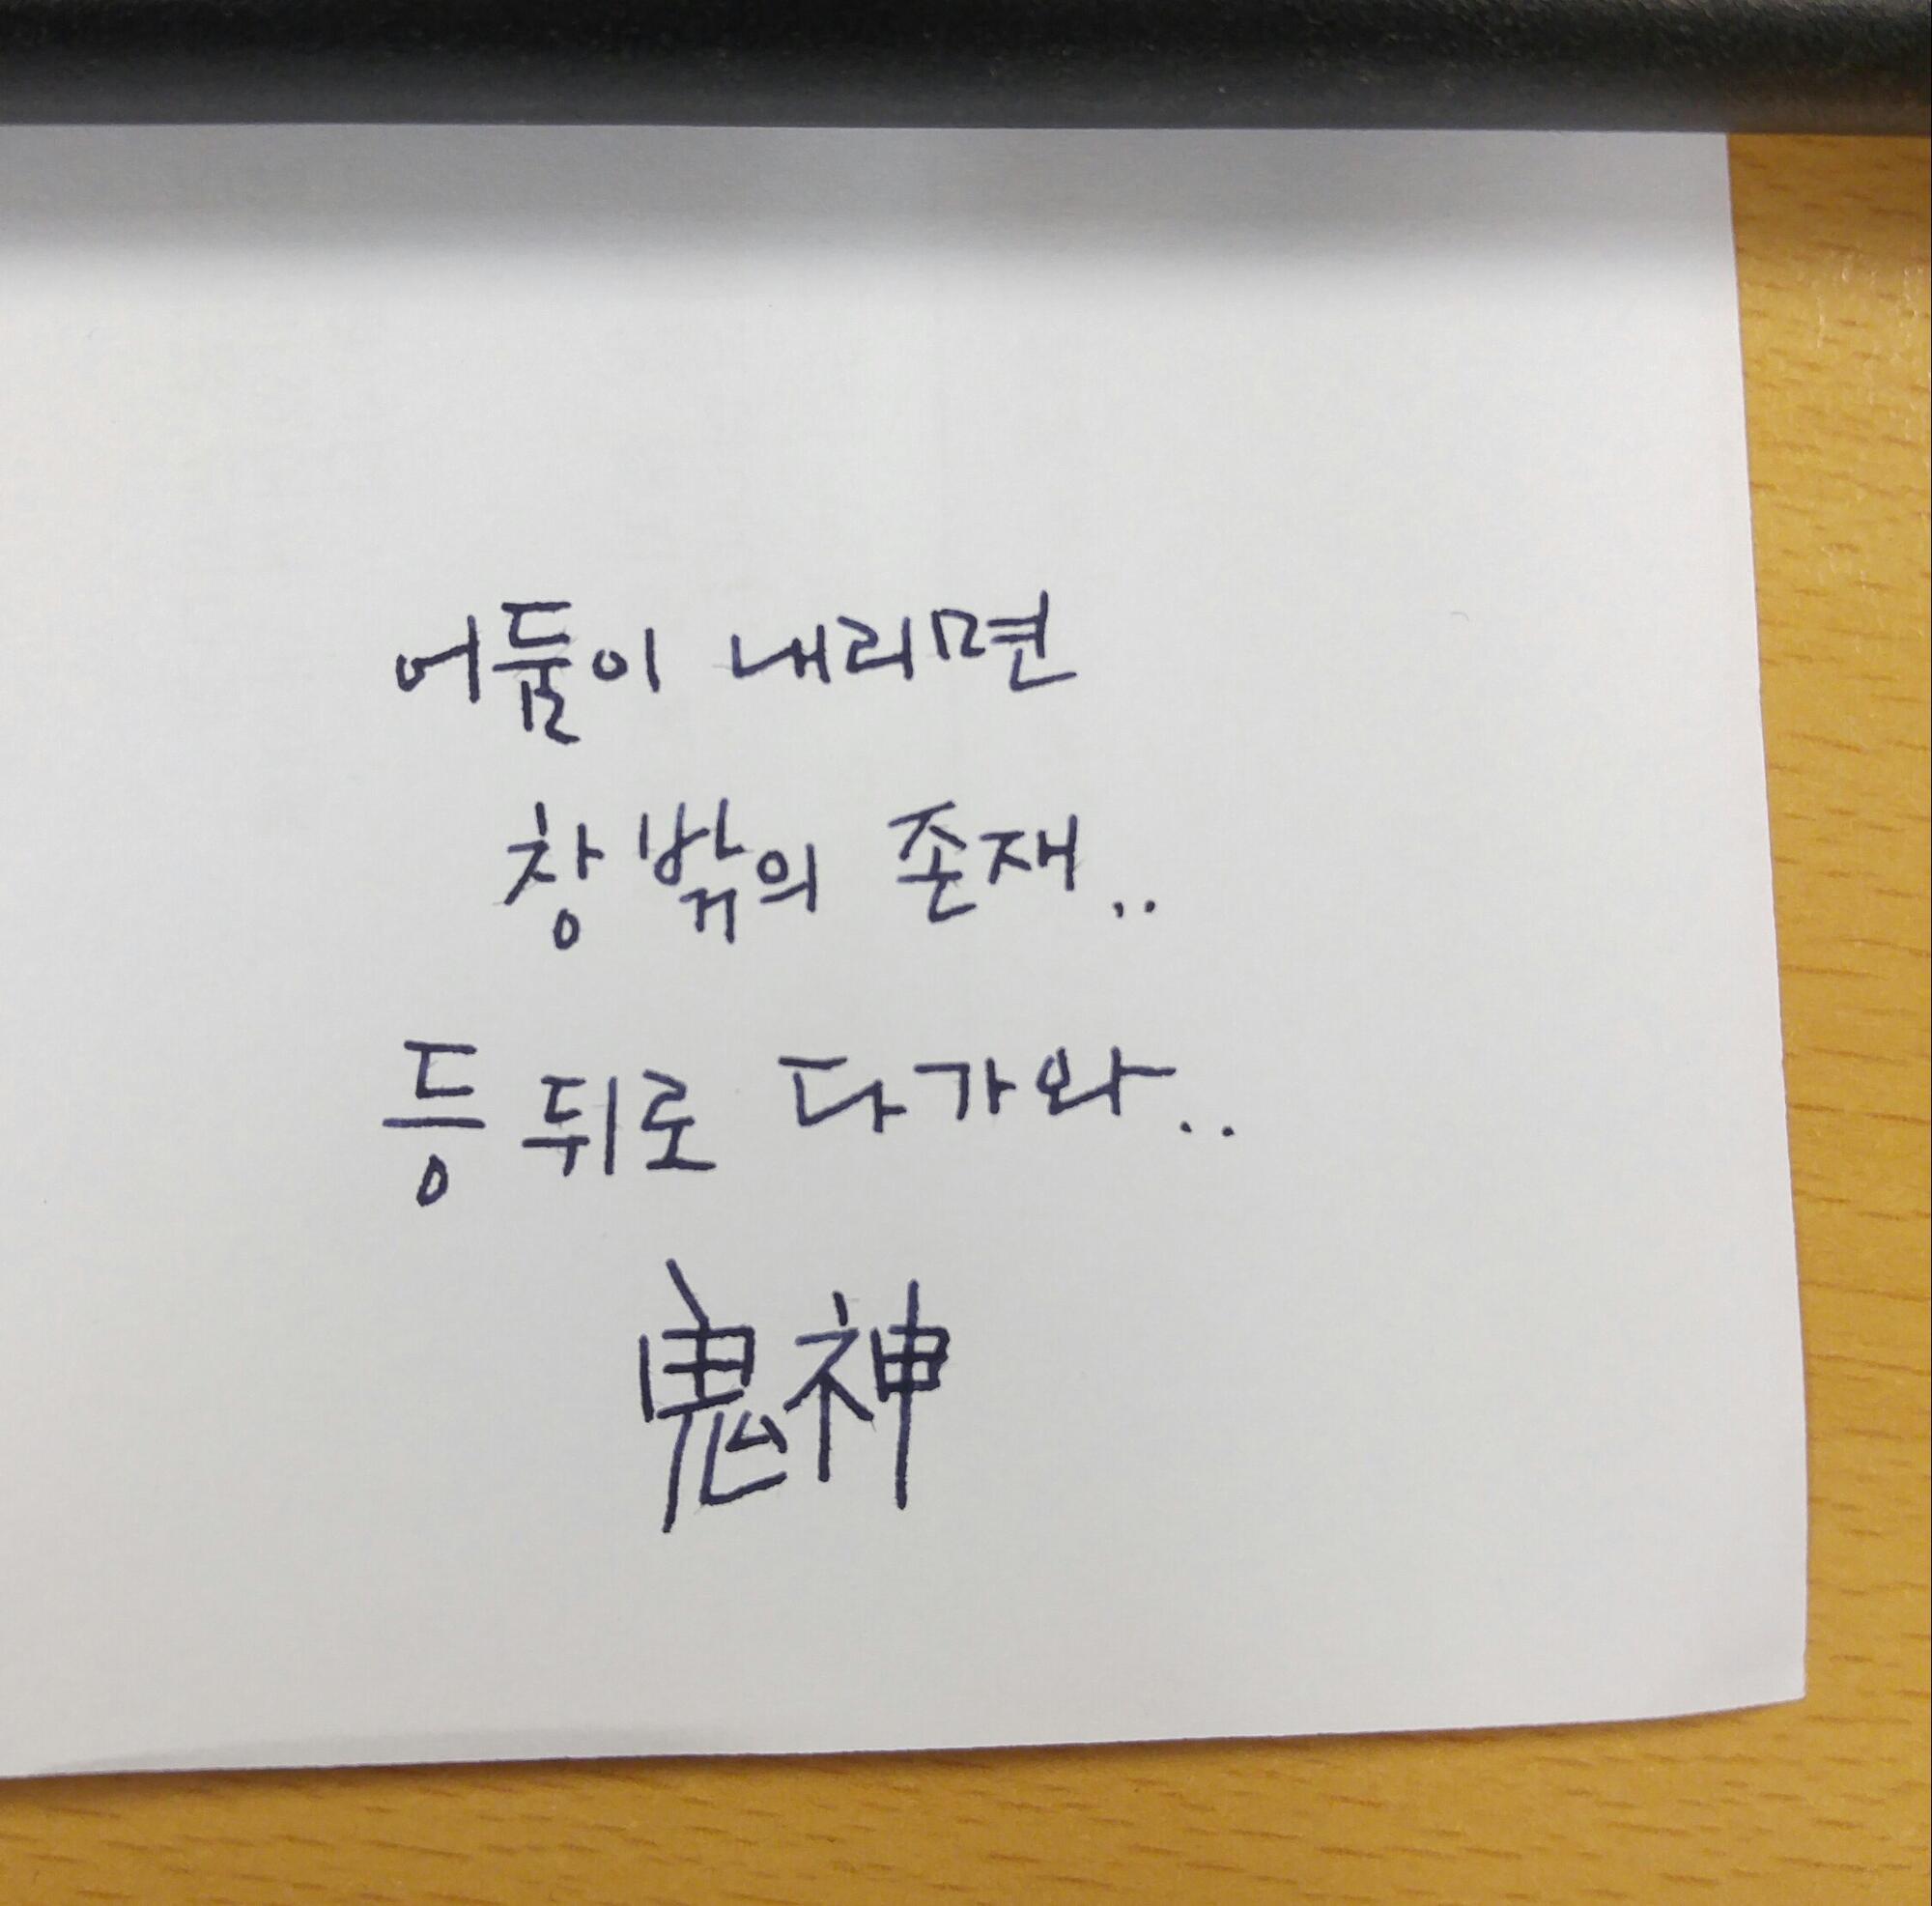 어둠이 내리면
창 밖의 존재..
등 뒤로 다가와..
鬼神